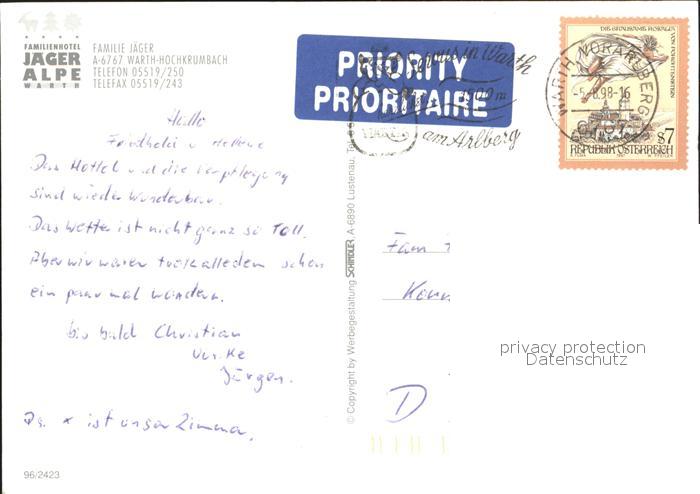 FAMILIENHOTEL
JÄGER
ALPE
WARTH
FAMILIE JÄGER
A-6767 WARTH-HOCHKRUMBACH
TELEFON 05519/250
TELEFAX 05519/243
PRIORITY
PRIORITAIRE
Servus in Warth
1500 m
am Arlberg
WARTH VORARLBERG
-5.8.98-16
6767
DIE GRAUSAME ROSALIA VON FORCHTENSTEIN
s7
REPUBLIK ÖSTERREICH
Hallo
Friedhelm u Hellene
Das Hottel und die Verpflegung
sind wieder Wunderbar.
Das Wetter ist nicht ganz so Toll.
Aber wir waren trotz alledem schon
ein paar mal wandern.
bis bald Christian
Ulrike
Jürgen.
Ps. x ist unser Zimmer.
Fam
D
© Copyright by Werbegestaltung SCHINDLER, A-6890 Lustenau, Tel.
privacy protection
Datenschutz
96/2423